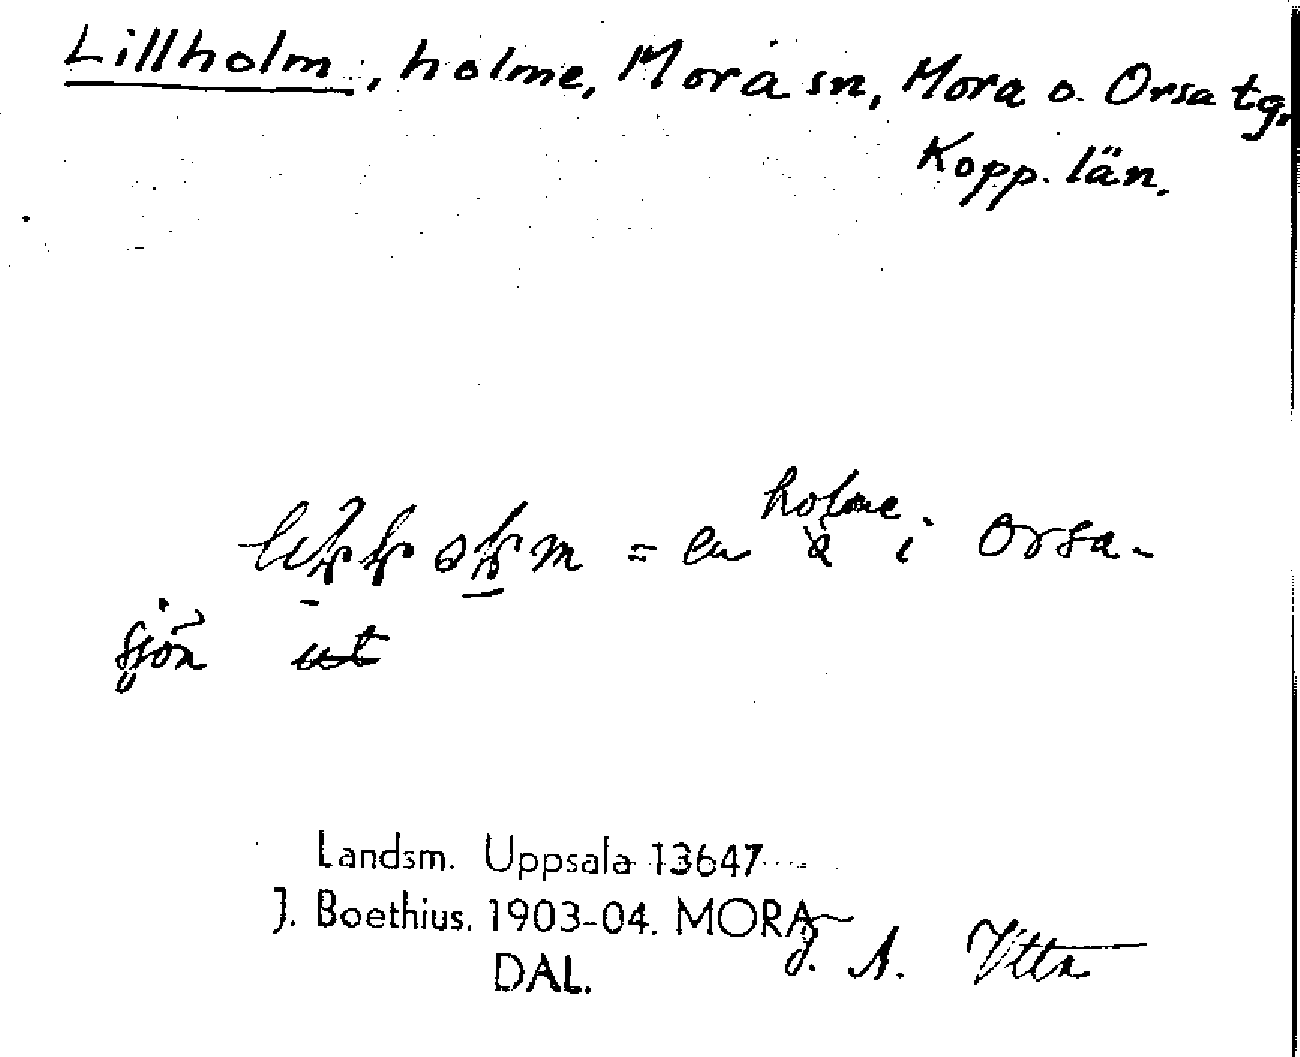 Lillholm, holme, Mora sn, Mora o. Orsa tg.
Kopp. län.
holme
= en i Orsa-
sjön
Landsm. Uppsala 13647
J. Boethius. 1903-04. MORA
DAL.